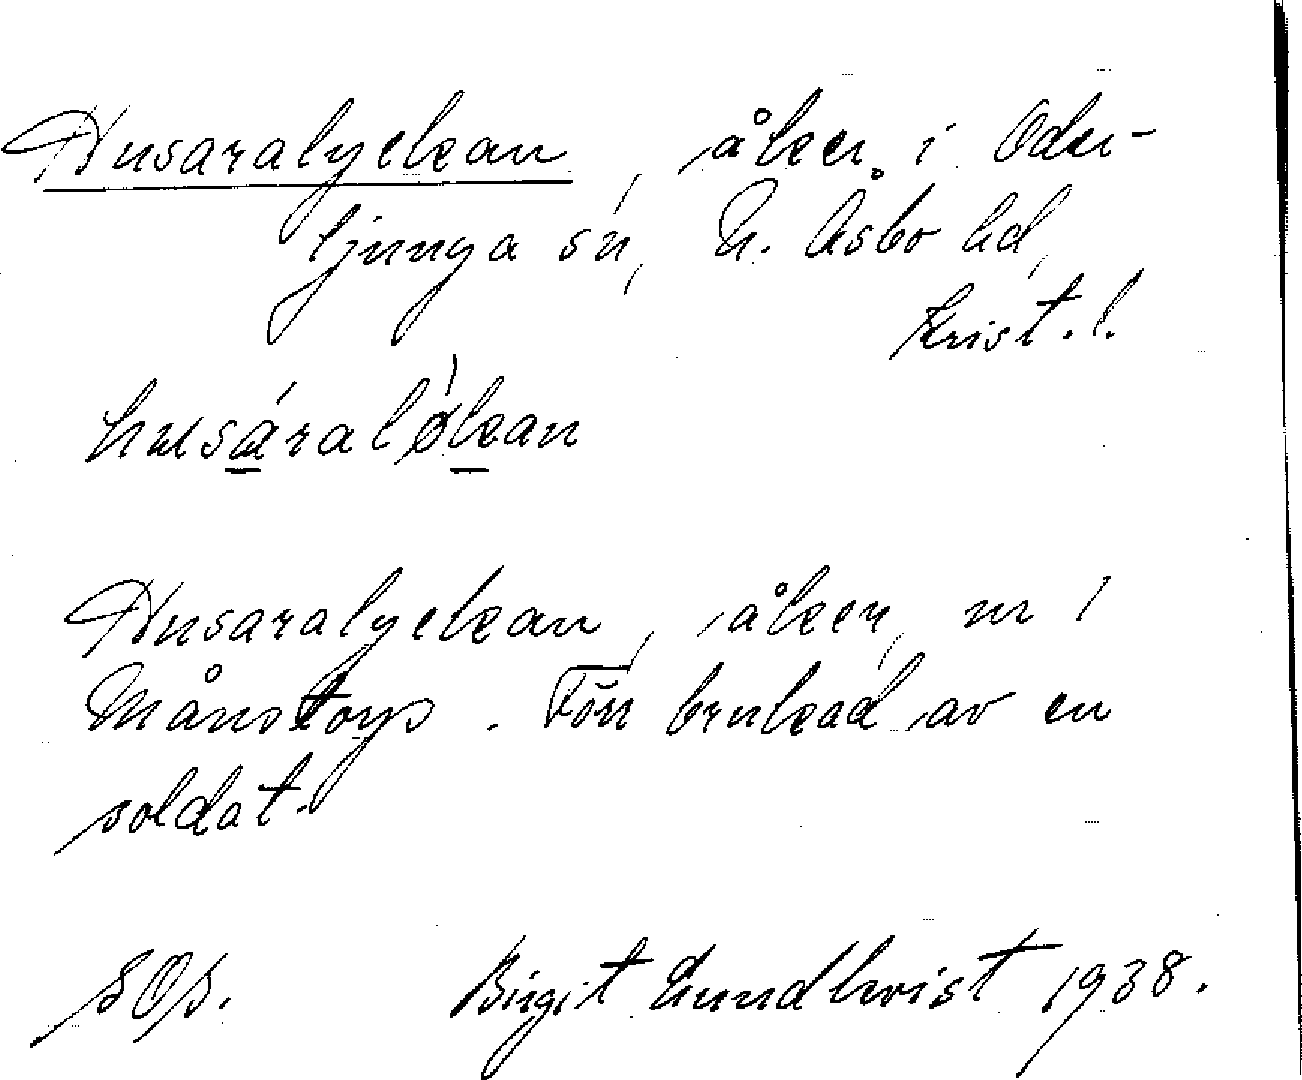 Husaralyckan, åker i Oder-
ljunga sn, N. Åsbo hd,
Krist. l.
husáraløkan
Husaralyckan, åker, nr 1
Månstorp. Förr brukad av en
soldat.
SOp. Birgit Lundkvist 1938.